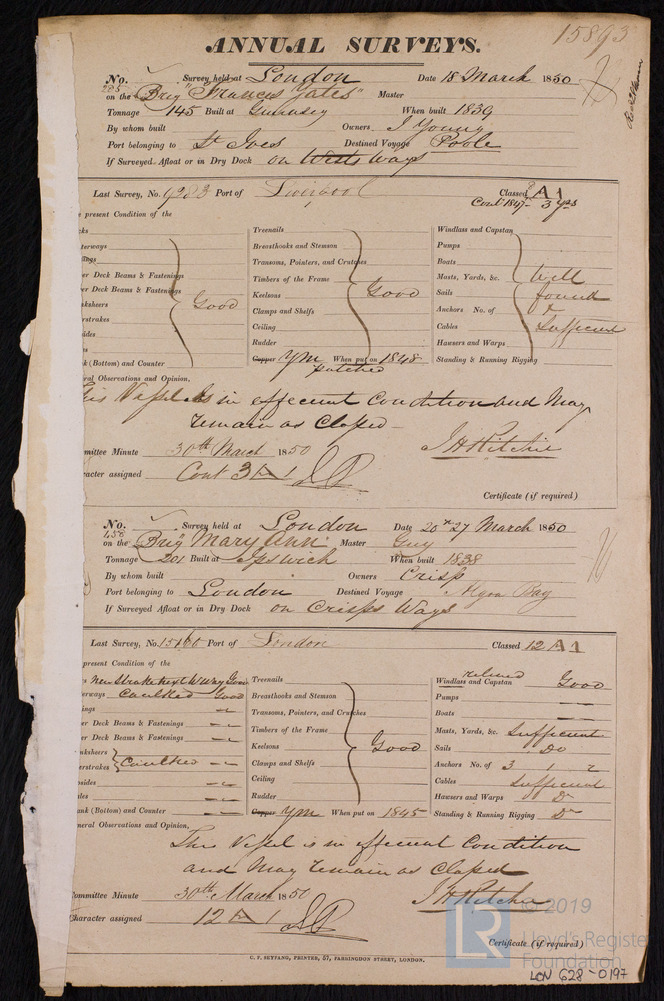 15893
ANNUAL SURVEYS.
No. 285 Survey held at London Date 18 March 1850
on the Brig "Frances Yates" Master
Tonnage 145 Built at Guernsey When built 1839
By whom built Owners J Young
Port belonging to St Ives Destined Voyage Poole
If Surveyed Afloat or in Dry Dock on Ways
Last Survey, No. 9283 Port of Liverpool Classed A1
Cont 1847 - 3 yrs
e present Condition of the
Treenails Windlass and Capstan
terways Breasthooks and Stemson Pumps
Transoms, Pointers, and Crutches Boats
er Deck Beams & Fastenings Timbers of the Frame Masts, Yards, &c. Well
er Deck Beams & Fastenings Good Keelsons Good Sails found
ksheers Clamps and Shelfs Anchors No. of &
erstrakes Ceiling Cables Sufficient
sides Rudder Hawsers and Warps
k (Bottom) and Counter Copper YM When put on 1848 Standing & Running Rigging
patched
ral Observations and Opinion,
This Vessel is in effecient Condition and May
remain as Classed
J H Ritchie
mmittee Minute 30th March 1850
racter assigned Cont 3 A 1
Certificate (if required)
No. 456 Survey held at London Date 20th 27 March 1850
on the Brig Mary Ann Master Guy
Tonnage 201 Built at Ipswich When built 1838
By whom built Owners Crisp
Port belonging to London Destined Voyage Algoa Bay
If Surveyed Afloat or in Dry Dock on Crisps Ways
Last Survey, No. 15160 Port of London Classed 12 A1
present Condition of the
New Strake next W Way Good Treenails Windlass and Capstan renewed Good
erways Caulked Good Breasthooks and Stemson Pumps
ings Transoms, Pointers, and Crutches Boats
er Deck Beams & Fastenings Timbers of the Frame Masts, Yards, &c. Sufficient
er Deck Beams & Fastenings Keelsons Good Sails Do
nksheers Clamps and Shelfs Anchors No. of 3 1 2
erstrakes Caulked Ceiling Cables Sufficient
psides Rudder Hawsers and Warps Do
ank (Bottom) and Counter Copper YM When put on 1845 Standing & Running Rigging Do
neral Observations and Opinion,
This Vessel is in effecient Condition
and May remain as Classed
J H Ritchie
ommittee Minute 30th March 1850
Character assigned 12 A 1
Certificate (if required)
C. F. SEYFANG, PRINTER, 57, FARRINGDON STREET, LONDON.
LR © 2019
Lloyd's Register
Foundation
LON 628-0197